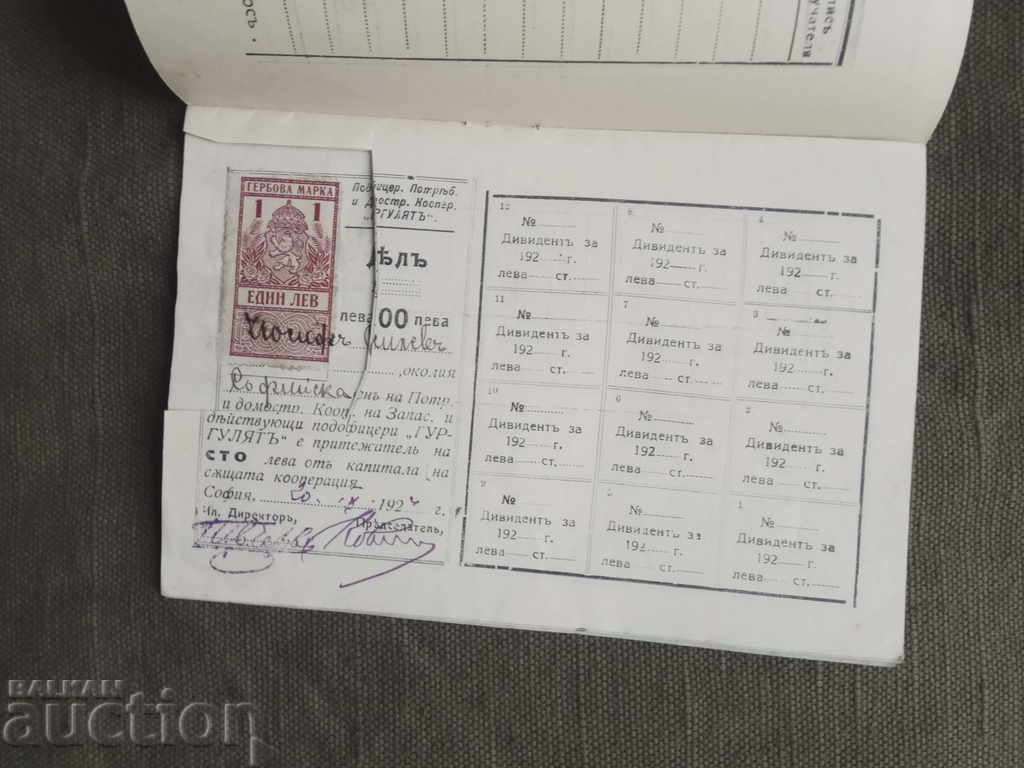 ГЕРБОВА МАРКА
1 1
ЕДИН ЛЕВ
Подофицер. Потрѣб.
и Домостр. Коопер.
„РГУЛЯТЪ“.
ДѢЛЪ
лева 00 лева
, околия
Софийска
на Потр.
и домостр. Кооп. на Запас. и
дѣйствующи подофицери „ГУР-
ГУЛЯТЪ“ е притежатель на
СТО лева отъ капитала на
сѫщата кооперация.
София, 20. IX. 1924 г.
Чл. Директоръ, Председатель,
12
№
Дивидентъ за
192 г.
лева ст.
8
№
Дивидентъ за
192 г.
лева ст.
4
№
Дивидентъ за
192 г.
лева ст.
11
№
Дивидентъ за
192 г.
лева ст.
7
№
Дивидентъ за
192 г.
лева ст.
Дивидентъ за
192 г.
лева ст.
10
№
Дивидентъ за
192 г.
лева ст.
6
№
Дивидентъ за
192 г.
лева ст.
2
№
Дивидентъ за
192 г.
лева ст.
9
№
Дивидентъ за
192 г.
лева ст.
5
№
Дивидентъ за
192 г.
лева ст.
1
№
Дивидентъ за
192 г.
лева ст.
BALKAN
auction